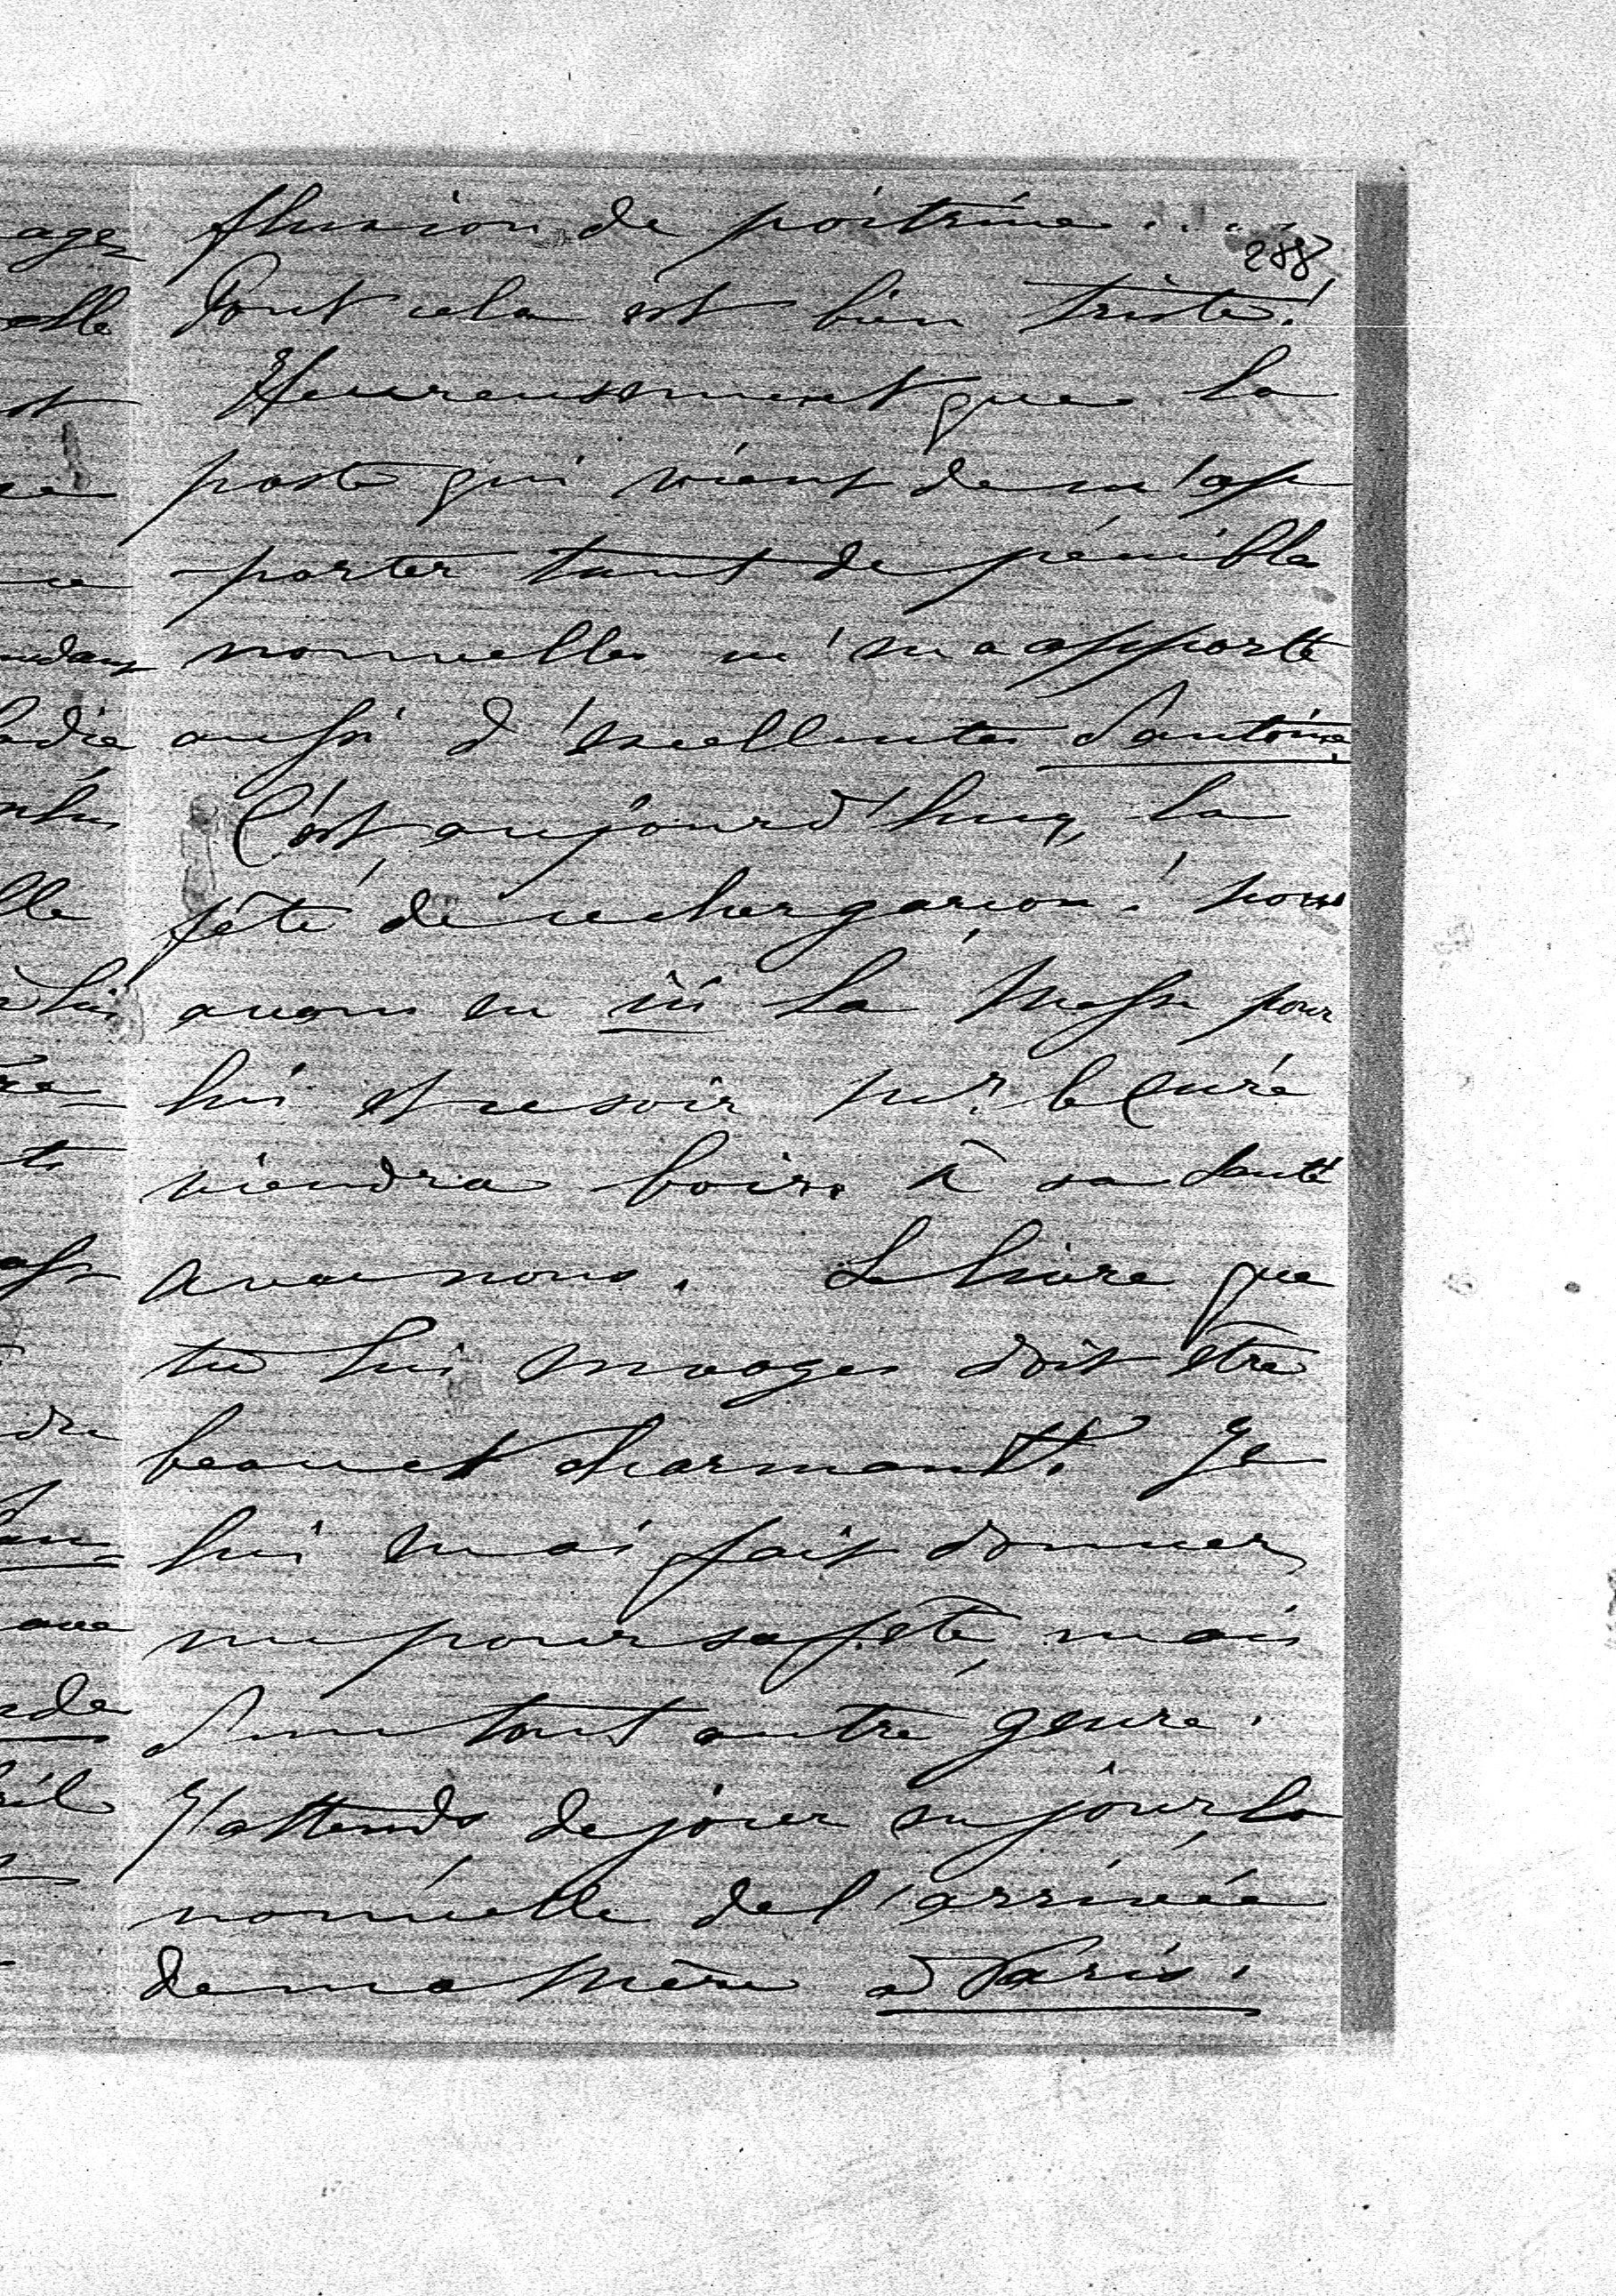 fluxion de poitrine.....
288
Tout cela est bien triste!
Heureusement que la
poste qui vient de m'ap
porter tant de pénibles
nouvelles m'en a apporté
aussi d'excellentes d'Antoine.
C'est aujourd'huy, la
fête de ce cher garçon! nous
avons eu ici la Messe pour
lui et ce soir Mr. le Curé
viendra boire à sa santé
avec nous. Le livre que
tu lui envoyes doit être
beau et charmant. Je
lui en ai fait donner
un pour sa fête, mais
d'un tout autre genre.
J'attends de jour en jour, la
nouvelle de l'arrivée
de ma Mère à Paris.